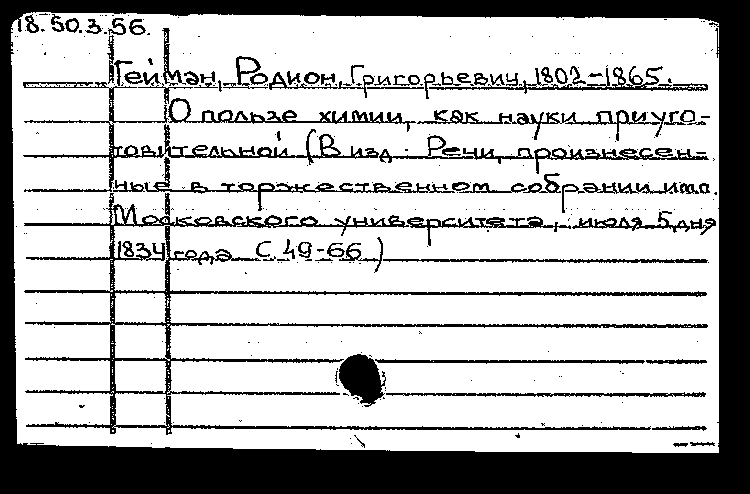 18.50.3.56.
Гейман, Родион, Григорьевич, 1802-1865.
О пользе химии, как науки приуго-
товительной (В изд: Речи, произнесен-
ные в торжественном собрании имп.
Московского университета, июля 5 дня
1834 года С. 49-66)